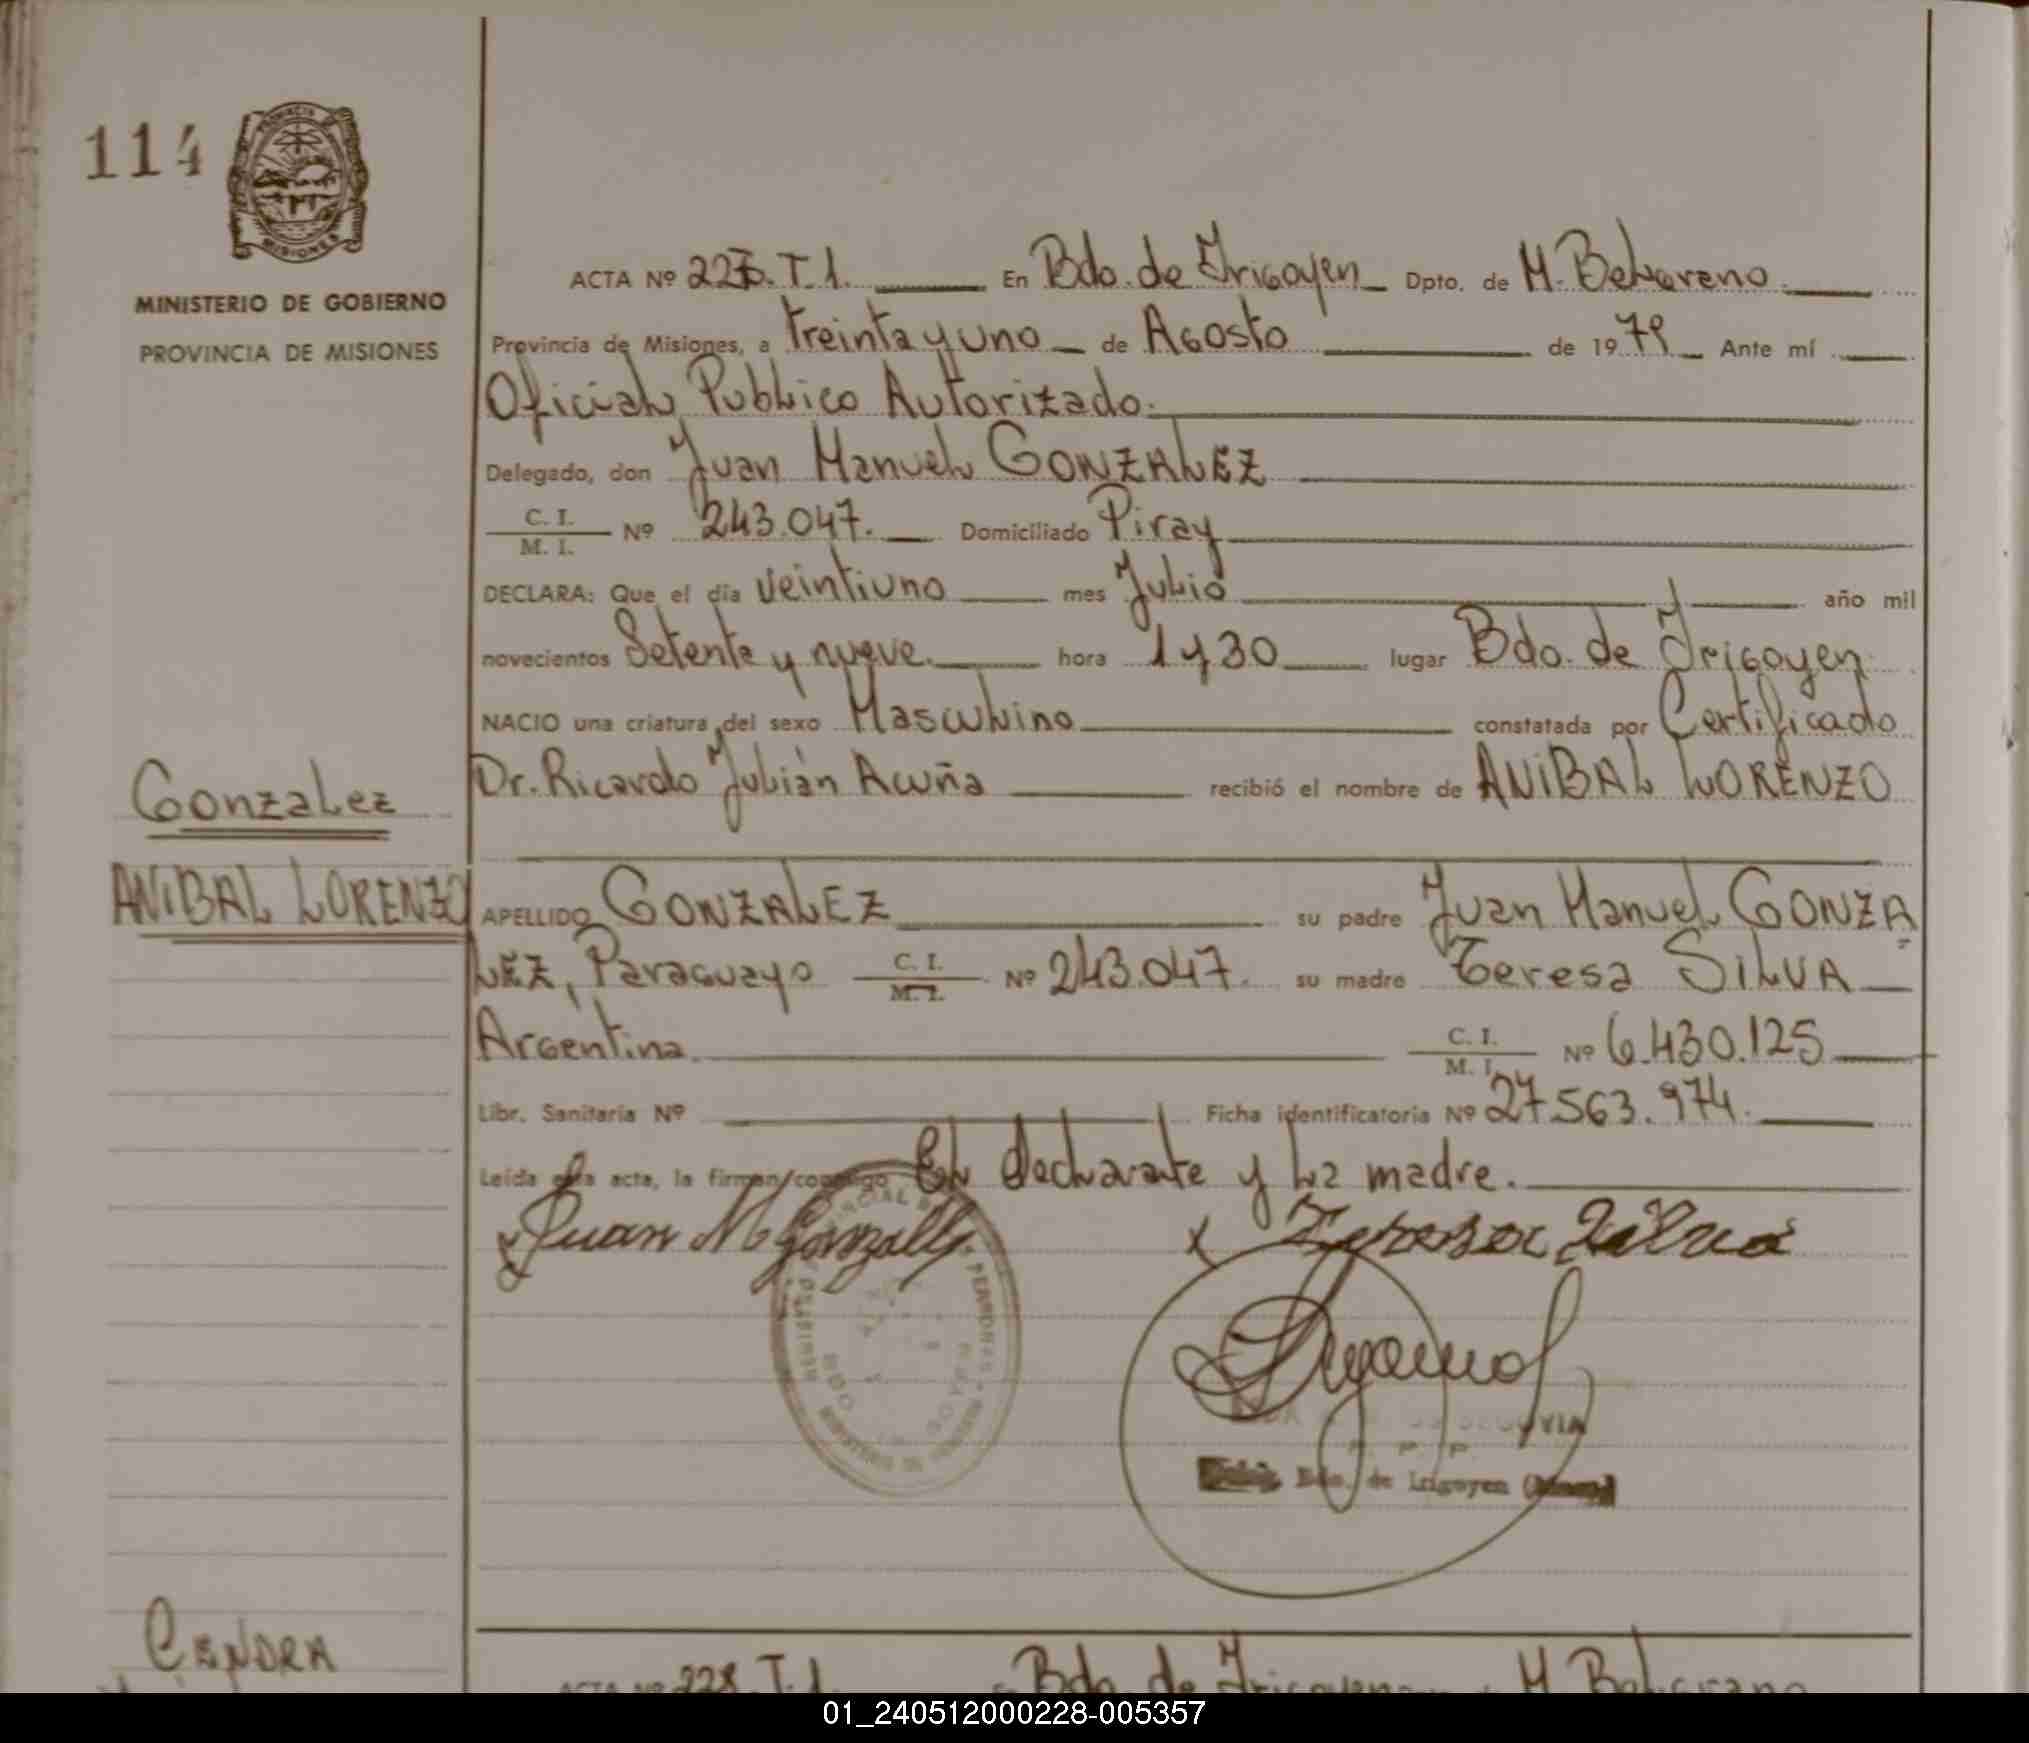 114
MINISTERIO DE GOBIERNO
PROVINCIA DE MISIONES
ACTA Nº 227. T. 1. En Bdo. de Irigoyen Dpto. de M. Belgrano.
Provincia de Misiones, a treinta y uno de Agosto de 1979 Ante mí
Oficial Publico Autorizado.
Delegado, don Juan Manuel GONZALEZ
C. I.
M. I. Nº 243.047. Domiciliado Piray
DECLARA: Que el día veintiuno mes Julio año mil
novecientos Setenta y nueve. hora 1 y 30 lugar Bdo. de Irigoyen
NACIO una criatura del sexo Masculino constatada por Certificado
Dr. Ricardo Julián Acuña recibió el nombre de ANIBAL LORENZO
Gonzalez
ANIBAL LORENZO
APELLIDO GONZALEZ su padre Juan Manuel GONZA
LEZ, Paraguayo C. I. M. I. Nº 243.047. su madre Teresa SILVA
Argentina C. I. M. I. Nº 6.430.125
Libr. Sanitaria Nº Ficha identificatoria Nº 27.563.974.
Leída esta acta, la firman conmigo El declarante y la madre.
Juan M Gonzalez x Teresa Silva
Bdo. de Irigoyen
CENDRA
ACTA Nº 228. T. 1. Bdo. de Irigoyen M. Belgrano
01_240512000228-005357